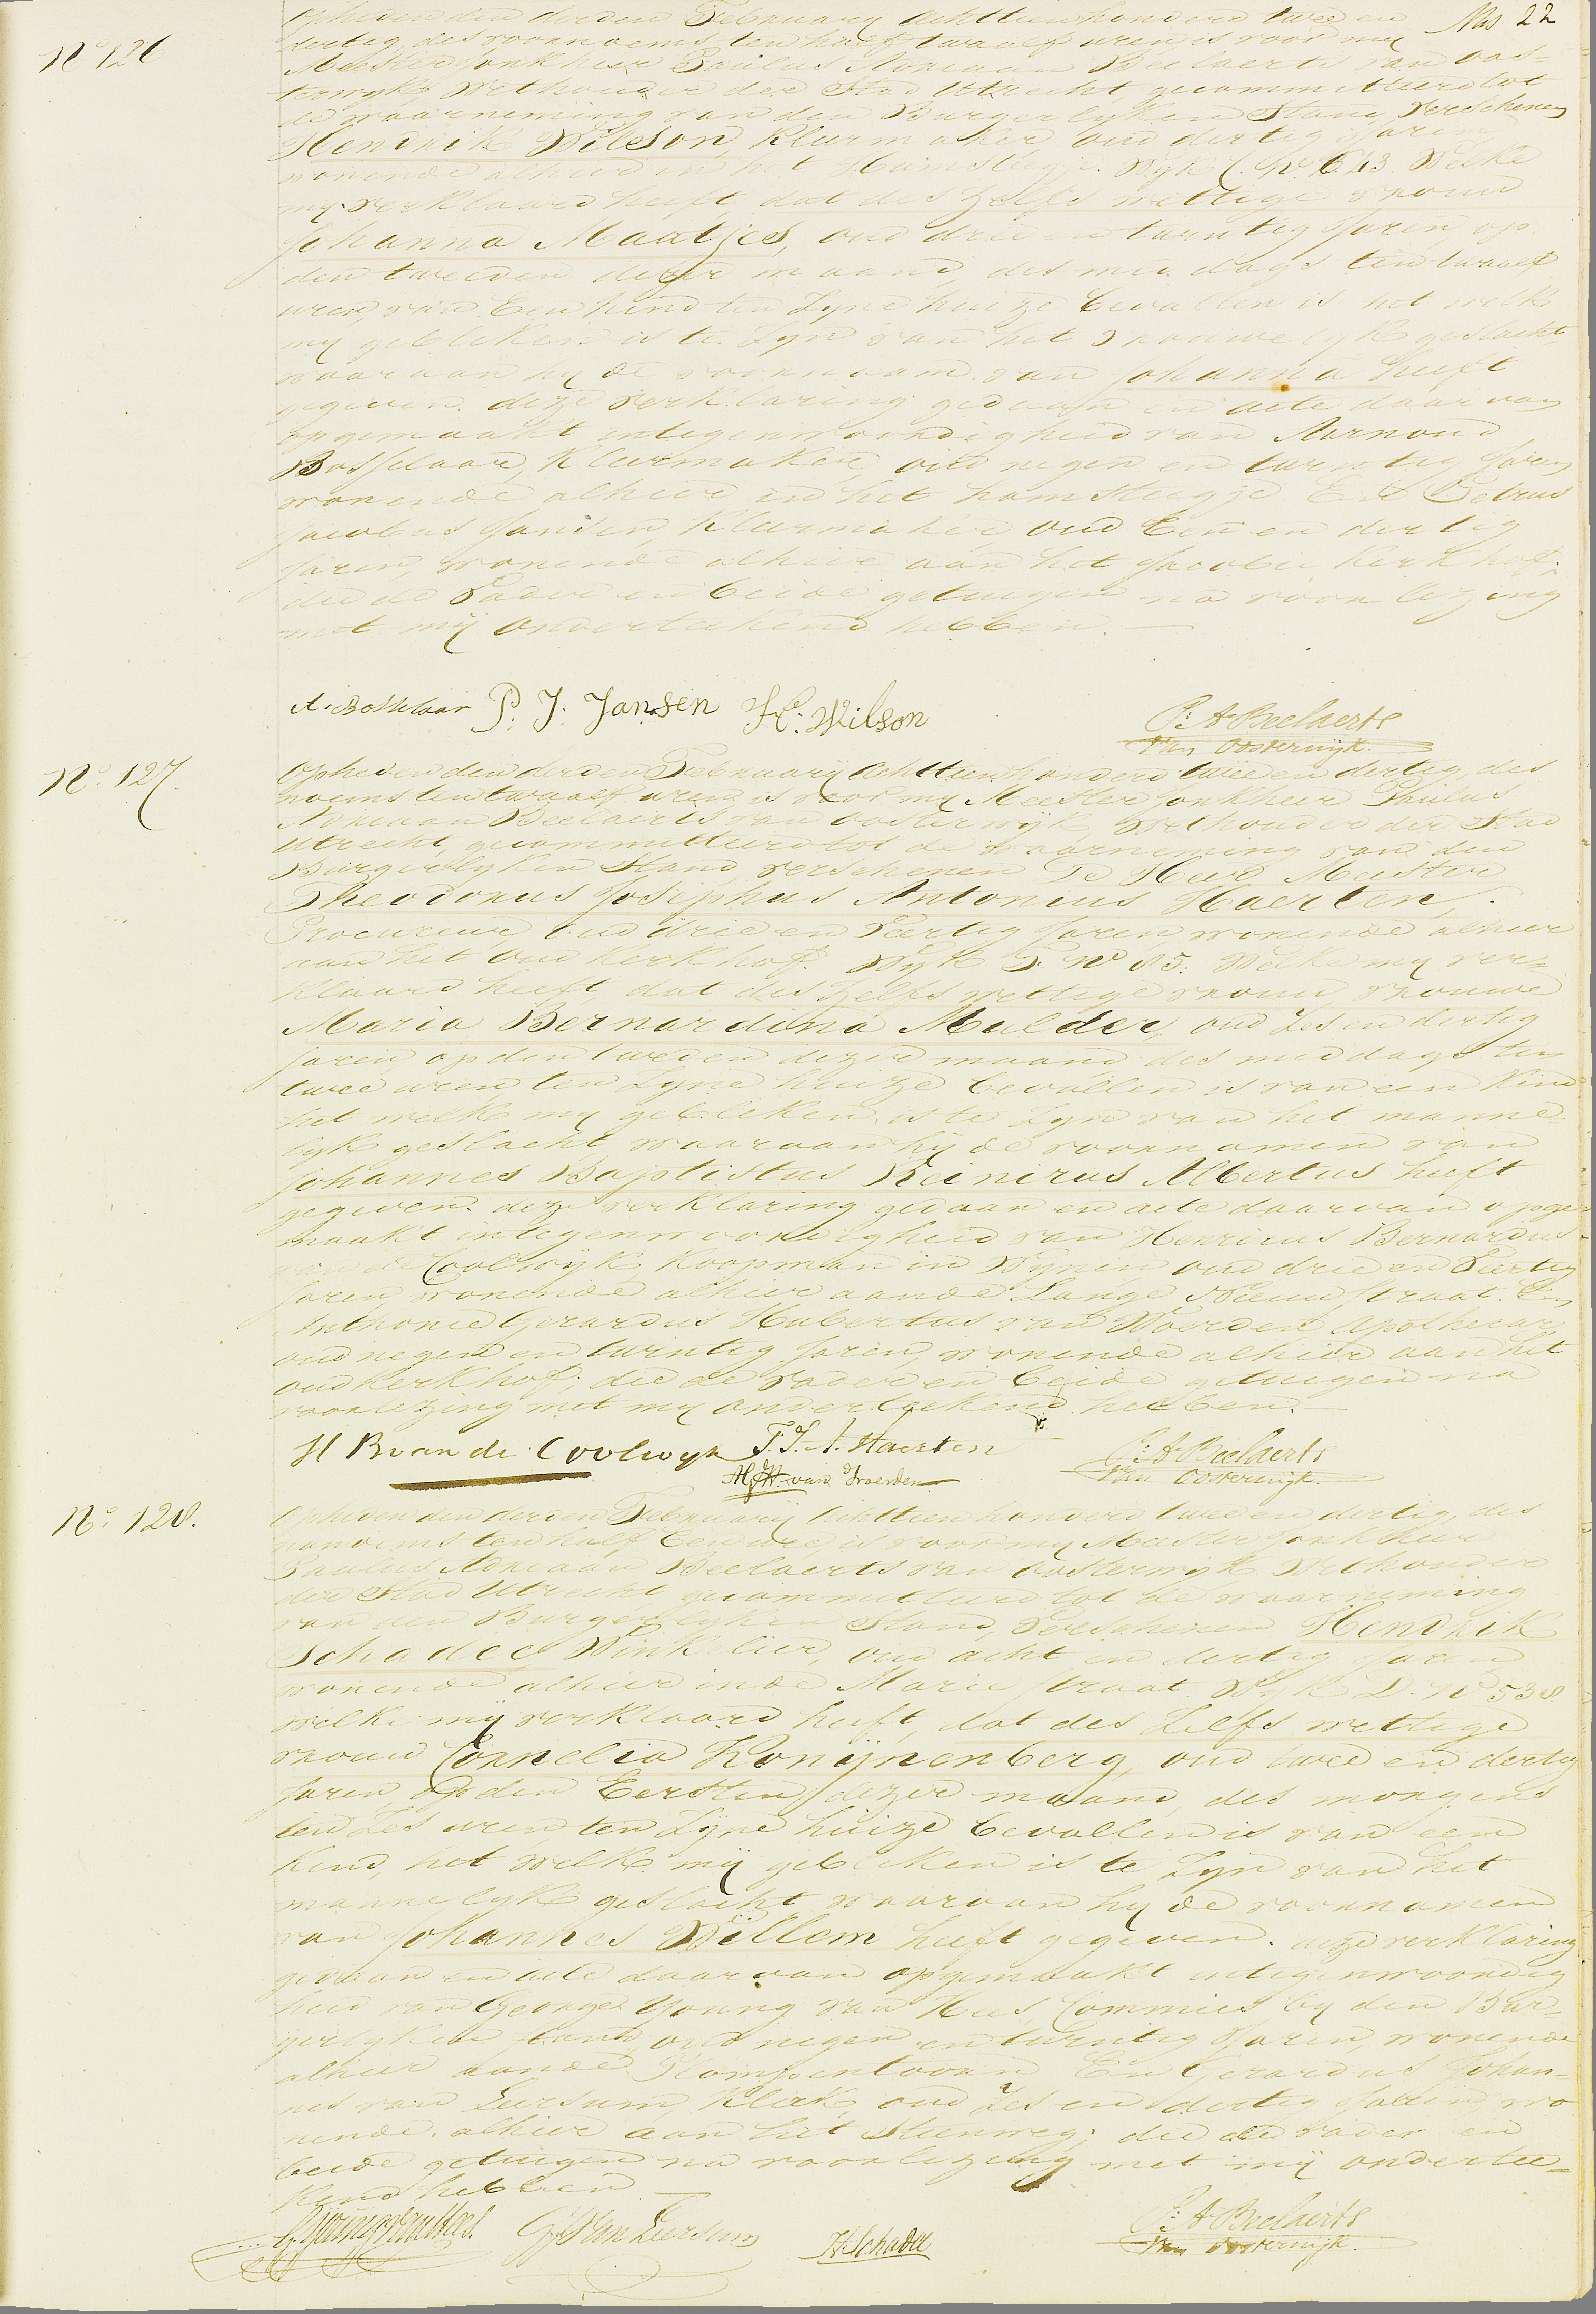 Opheden den derden February Achttien honderd twee en
No 22
No 126
dertig, des voornoems ten half twaalf uren is voor my
Meester Jonkheer Paulus Adriaan Beelaerts van Oos-
terwyk, Wethouder der Stad Utrecht, gecommitteerd tot
de waarneming van den Burgerlyken Stand, Verschenen
Hendrik Wilson, Kleermaker, oud dertig Jaren
wonende alhier in het Hamsteegje. Wyk C. No 613. Welke
my verklaard heeft, dat des zelfs wettige vrouw
Johanna Maatjes, oud drie en twintig Jaren op
den tweeden dezer maand, des middags ten twaalf
uren, van Een kind ten Zyne huize bevallen is het welk
my gebleken is te Zyn van het vrouwelyk geslacht
waar aan hy de voornaam van Johanna heeft
gegeven. deze verklaring gedaan en acte daar van
opgemaakt integenwoordigheid van Arnoud
Bosselaar, Kleermaker, oud negen en twintig Jaren
wonende alhier in het hamsteegje. En Petrus
Jacobus Jansen, Kleermaker oud Een en dertig
Jaren, wonende alhier aan het Jacobie Kerk hof.
die de Vader en beide getuigen na voorlezing
met mij onderteekend hebben.
A. Bosselaar P. J. Jansen H. Wilson
P. A Beelaerts
Van Oosterwijk.
No. 127.
Opheden den derden February Achttien honderd twee en dertig, des
noems ten twaalf uren, is voor my Meester Jonkheer Paulus
Adriaan Beelaerts van Oosterwyk, Wethouder der Stad
Utrecht, gecommitteerd tot de waarneming van den
Burgerlyken Stand, verschenen De Heer Meester
Theodorus Josephus Antonius Haerten,
Procureur, oud drie en Veertig Jaren, wonende alhier
aan het Oud Kerk hof. Wyk F. No 85. Welke my ver-
klaard heeft, dat des zelfs wettige vrouw, vrouwe
Maria Bernardina Mulder, oud Zes en dertig
Jaren, op den tweeden dezer maand des middags ten
twee uren, ten Zyne huize bevallen is van een Kind
het welk my gebleken is te Zyn van het manne-
lyk geslacht, waaraan hy de voornamen van
Johannes Baptistus Reinirus Albertus heeft
gegeven. deze verklaring gedaan en acte daarvan opge-
maakt integenwoordigheid van Henricus Bernardus
van de Coolwijk, Koopman in Wynen, oud drie en Veertig
Jaren wonende alhier aan de Lange Nieuw Straat. En
Anthonie Gerardus Hubertus van Woerden Apothecar,
oud negen en twintig Jaren, wonende alhier aan het
oud kerk hof; die de Vader en beide getuigen na
voorlezing met my onderteekend hebben.
H B van de Coolwyk T. J. A. Haerten
P. A. Beelaerts
AGH. van Woerden
Van Oosterwijk.
No. 128.
Opheden den derden February Achttien honderd twee en dertig, des
van noems ten half Een ure, is voor my Meester Jonkheer
Paulus Adriaan Beelaerts van Oosterwyk Wethouder
der Stad Utrecht, gecommitteerd tot de waarneming
van den Burgerlyken Stand, Verschenen Hendrik
Schadee Winkelier, oud acht en dertig Jaren
wonende alhier in de Marie straat Wyk D. No 538.
Welke mij verklaard heeft, dat des Zelfs wettige
vrouw Cornelia Konijnenberg, oud twee en dertig
Jaren op den Eersten dezer maand, des morgens
ten Zes uren ten Zyne huize bevallen is van een
Kind, het welk mij gebleken is te Zyn van het
mannelyk geslacht waaraan hy de voornamen
van Johannes Willem heeft gegeven. deze verklaring
gedaan en acte daarvan opgemaakt integenwoordig
heid van George Young van Hees, Commies by den Bur-
gerlyken stand, oud negen en twintig Jaren, wonende
alhier aan de Plompentoren En Gerardus Johan-
nes van Leersum, Klerk, oud Zes en dertig Jaren wo
nende alhier aan het Steenweg; die de vader en
beide getuigen na voorlezing met mij ondertee-
kend hebben
G. Young van Hees. GJ Van Leersum H. Schadee
P. A Beelaerts
Van Oosterwijk.